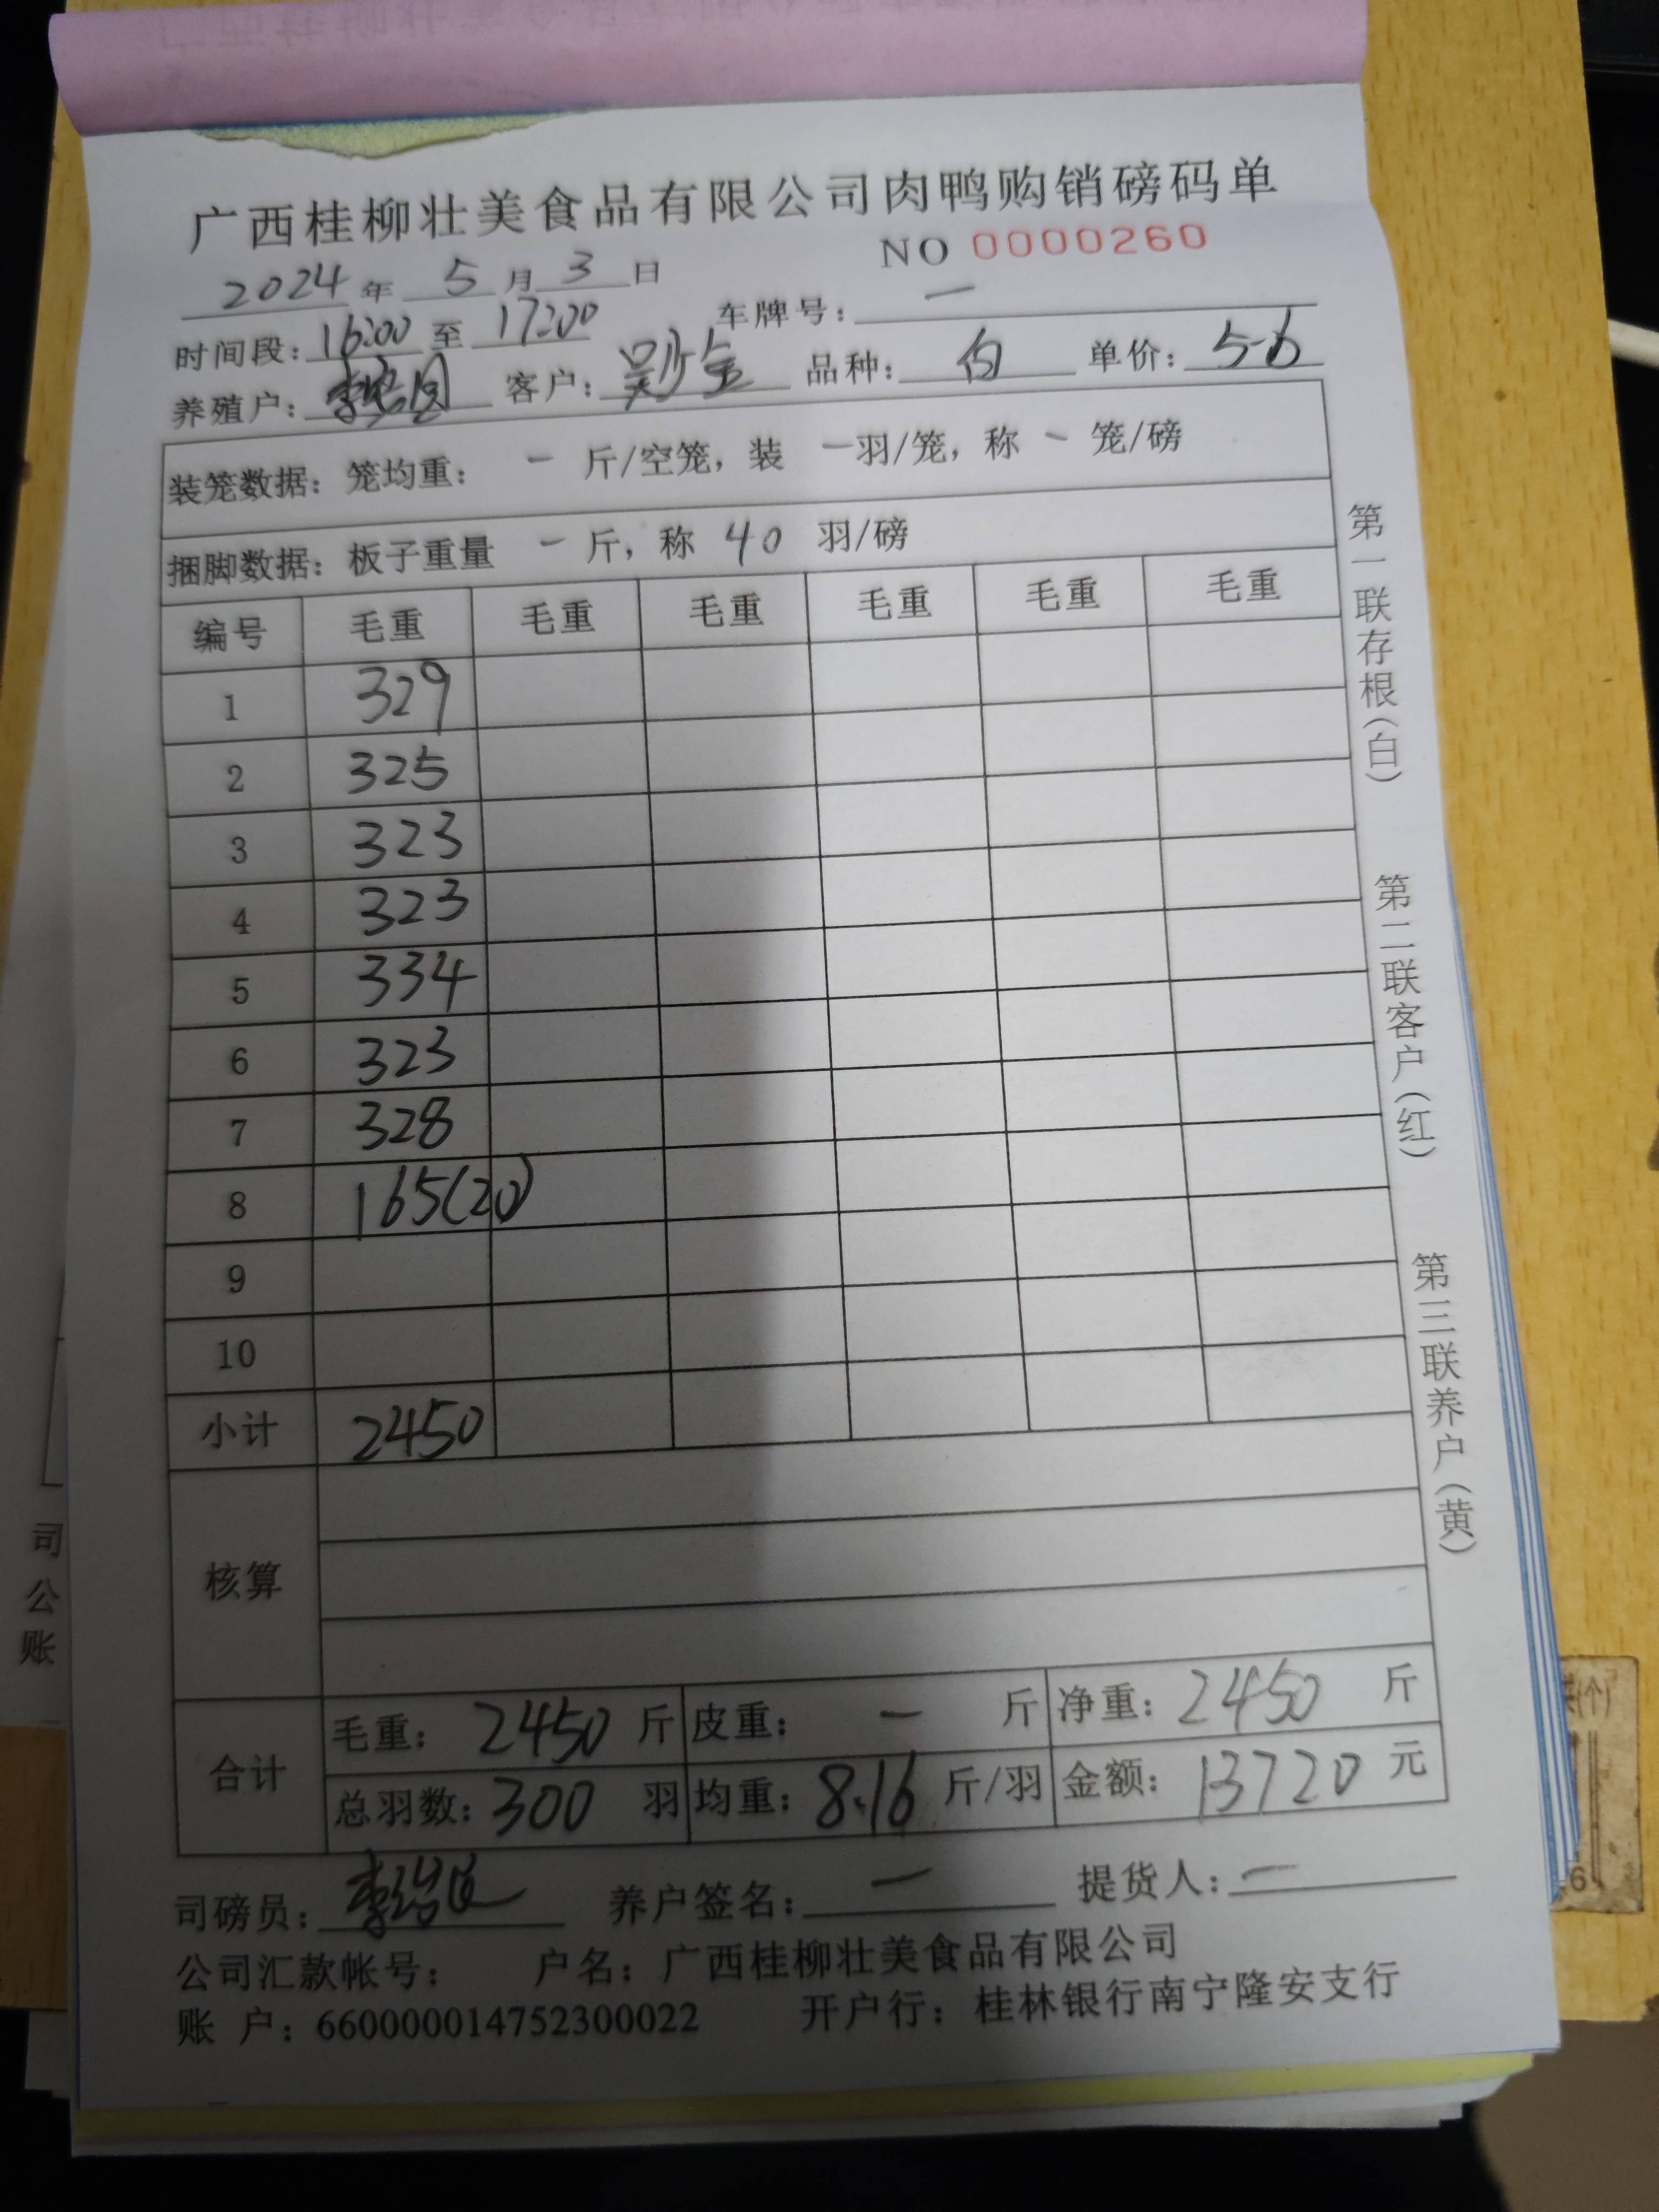 广西桂柳壮美食品有限公司肉鸭购销磅码单
NO 0000260
2024 年 5 月 3 日
时间段: 16:00 至 17:00 车牌号: 一
养殖户: 客户: 吴少金 品种: 白 单价: 5.6
装笼数据: 笼均重: 一 斤/空笼, 装 一 羽/笼, 称 一 笼/磅
捆脚数据: 板子重量 一 斤, 称 40 羽/磅
编号 毛重 毛重 毛重 毛重 毛重 毛重
1 329
2 325
3 323
4 323
5 334
6 323
7 328
8 165(20)
9
10
小计 2450
核算
合计
毛重: 2450 斤 皮重: 一 斤 净重: 2450 斤
总羽数: 300 羽 均重: 8.16 斤/羽 金额: 13720 元
司磅员: 养户签名: 一 提货人: 一
公司汇款帐号: 户名: 广西桂柳壮美食品有限公司
账 户: 660000014752300022 开户行: 桂林银行南宁隆安支行
第一联存根(白)
第二联客户(红)
第三联养户(黄)
司
公
账